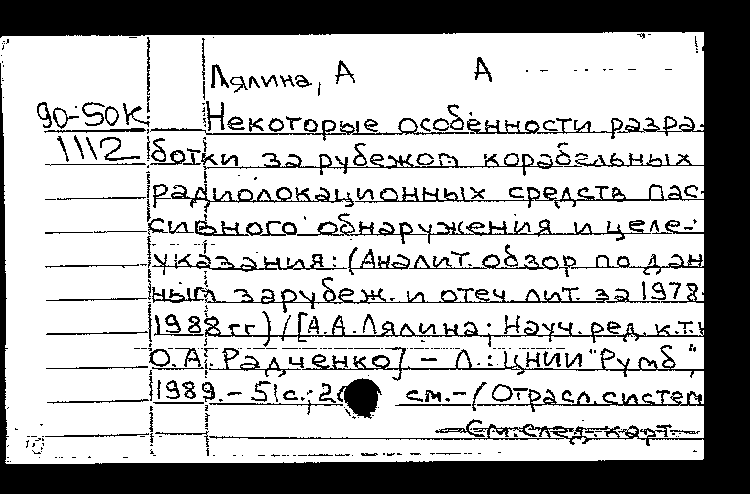 Лялина, А А
90-50К Некоторые особенности разра-
1112 ботки за рубежом корабельных
радиолокационных средств пас-
сивного обнаружения и целе-
указания: (Аналит. обзор по дан
ным зарубеж. и отеч. лит. за 1978-
1988 гг) / [А.А. Лялина; Науч. ред. к.т.н
О.А. Радченко] - Л.: ЦНИИ "Румб",
1989. - 51 с.; см. - (Отрасл. систем
См. след. карт.